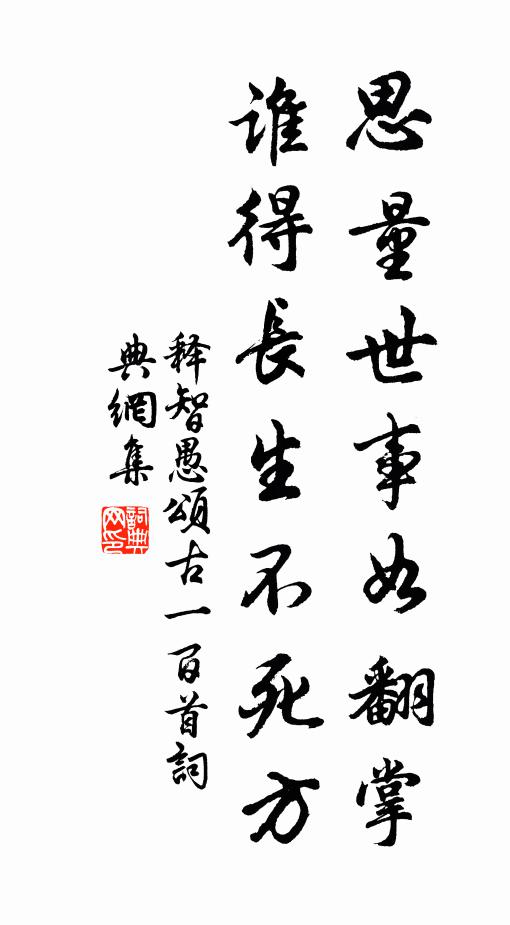 思量世事如翻掌
誰得長生不死方
释智愚頌古一百首詞
典網集
詞典網印